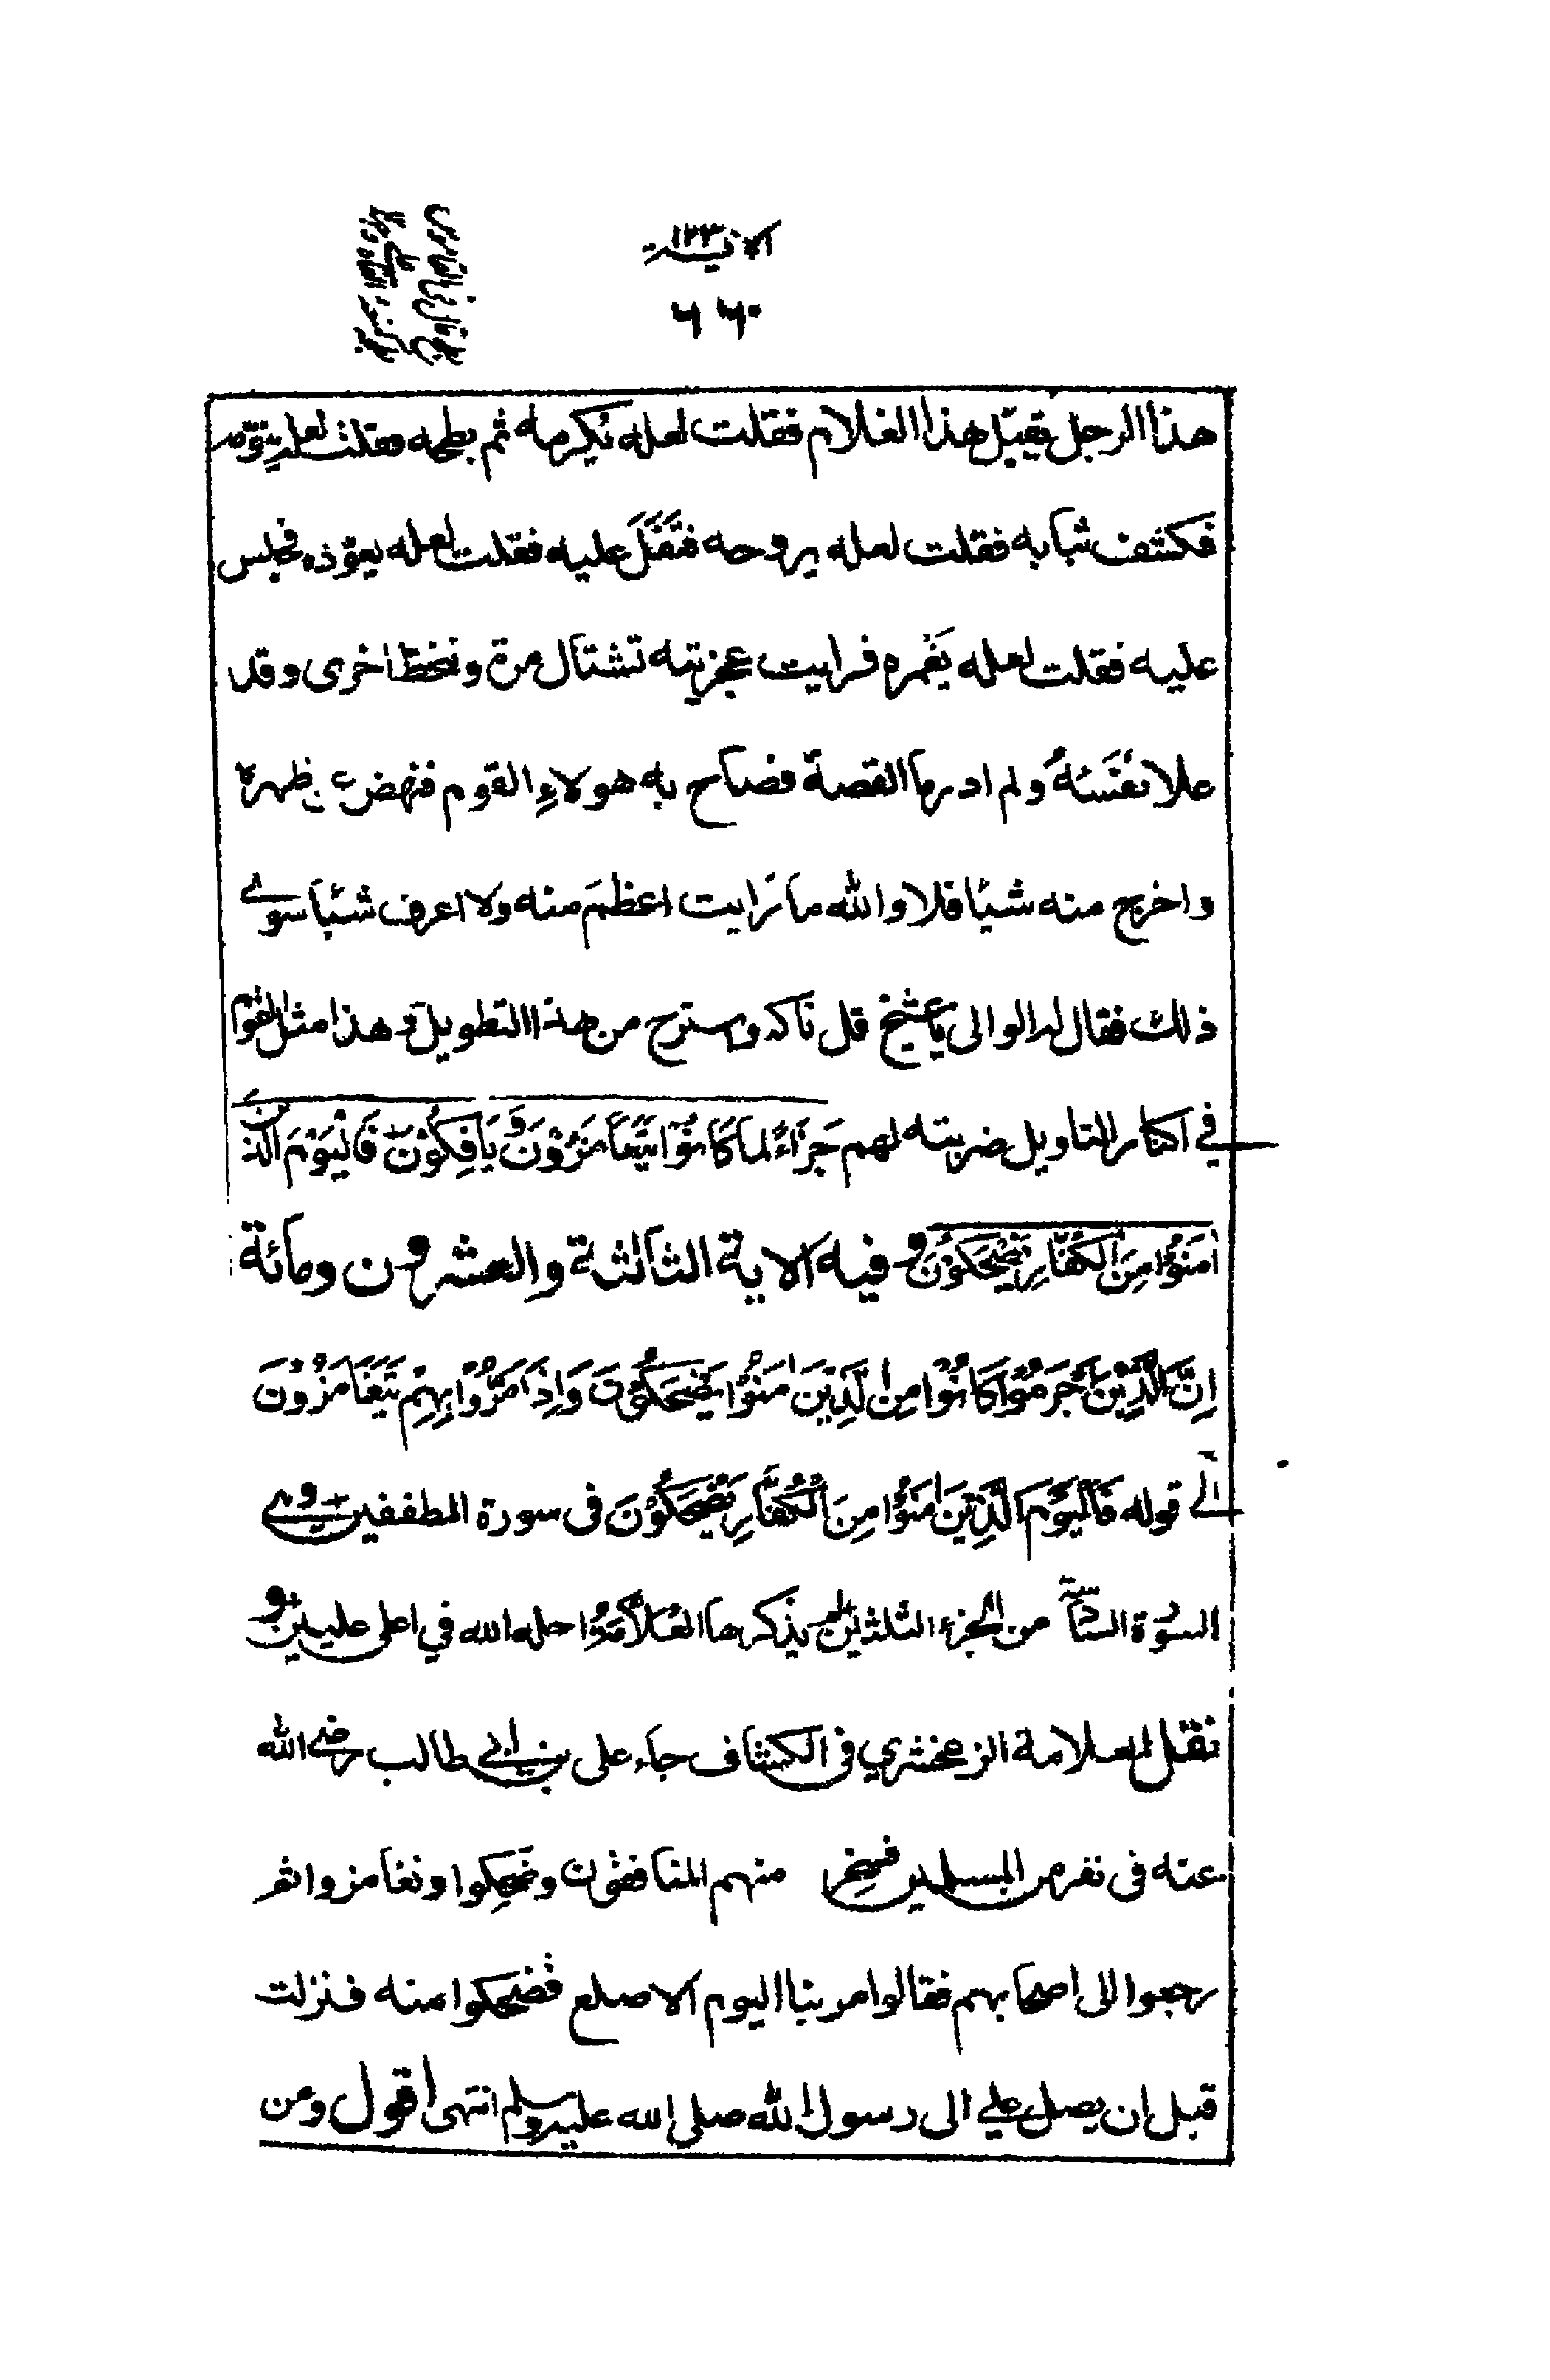 الاٰية ١٢٣
٦٦٠
هذا الرجل يقبّل هذا الغلام فقلت لعله يكرمه ثم بطحه فقلت لعله ينوّمه
فكشف ثيابه فقلت لعله يروحه فتَفَلَ عليه فقلت لعله يعوّذه فجلس
عليه فقلت لعله يغمره فرايت عجزيته تشتال مرة وتنحط اخرى وقد
علا نَفَسُهُ ولم ادر ما القصة فصاح به هولاءِ القوم فنهض عن ظهره
واخرج منه شيئا فلا والله ما رايت اعظم منه ولا اعرف شيئا سوى
ذلك فقال له الوالى يا شيخ قل ناكه واسترح من هذا التطويل وهذا مثل القوم
في اكثار التاويل ضربته لهم جَزَاءً لما كَانُوْا يَتَغَامَزُوْنَ وَيَافِكُوْنَ فَالْيَوْمَ الَّذِيْنَ
اٰمَنُوْا مِنَ الْكُفَّارِ يَضْحَكُوْنَ وفيه الاية الثالثة والعشرون ومائة
اِنَّ الَّذِيْنَ اَجْرَمُوْا كَانُوْا مِنَ الَّذِيْنَ اٰمَنُوْا يَضْحَكُوْنَ وَاِذَا مَرُّوْا بِهِمْ يَتَغَامَزُوْنَ
الى قوله فَالْيَوْمَ الَّذِيْنَ اٰمَنُوْا مِنَ الْكُفَّارِ يَضْحَكُوْنَ فى سورة المطففين وهى
السورة السادسة من الجزء الثلثين لم يذكرها العلامة احله الله في اعلى عليين و
نقل العلامة الزمخشري فى الكشاف جاء على بن ابى طالب رضى الله
عنه فى نفر من المسلمين فسخر منهم المنافقون وضحكوا وتغامزوا ثم
رجعوا الى اصحابهم فقالوا مر بنا اليوم الاصلع فضحكوا منه فنزلت
قبل ان يصل علي الى رسول الله صلى الله عليه وسلم انتهى اقول ومن